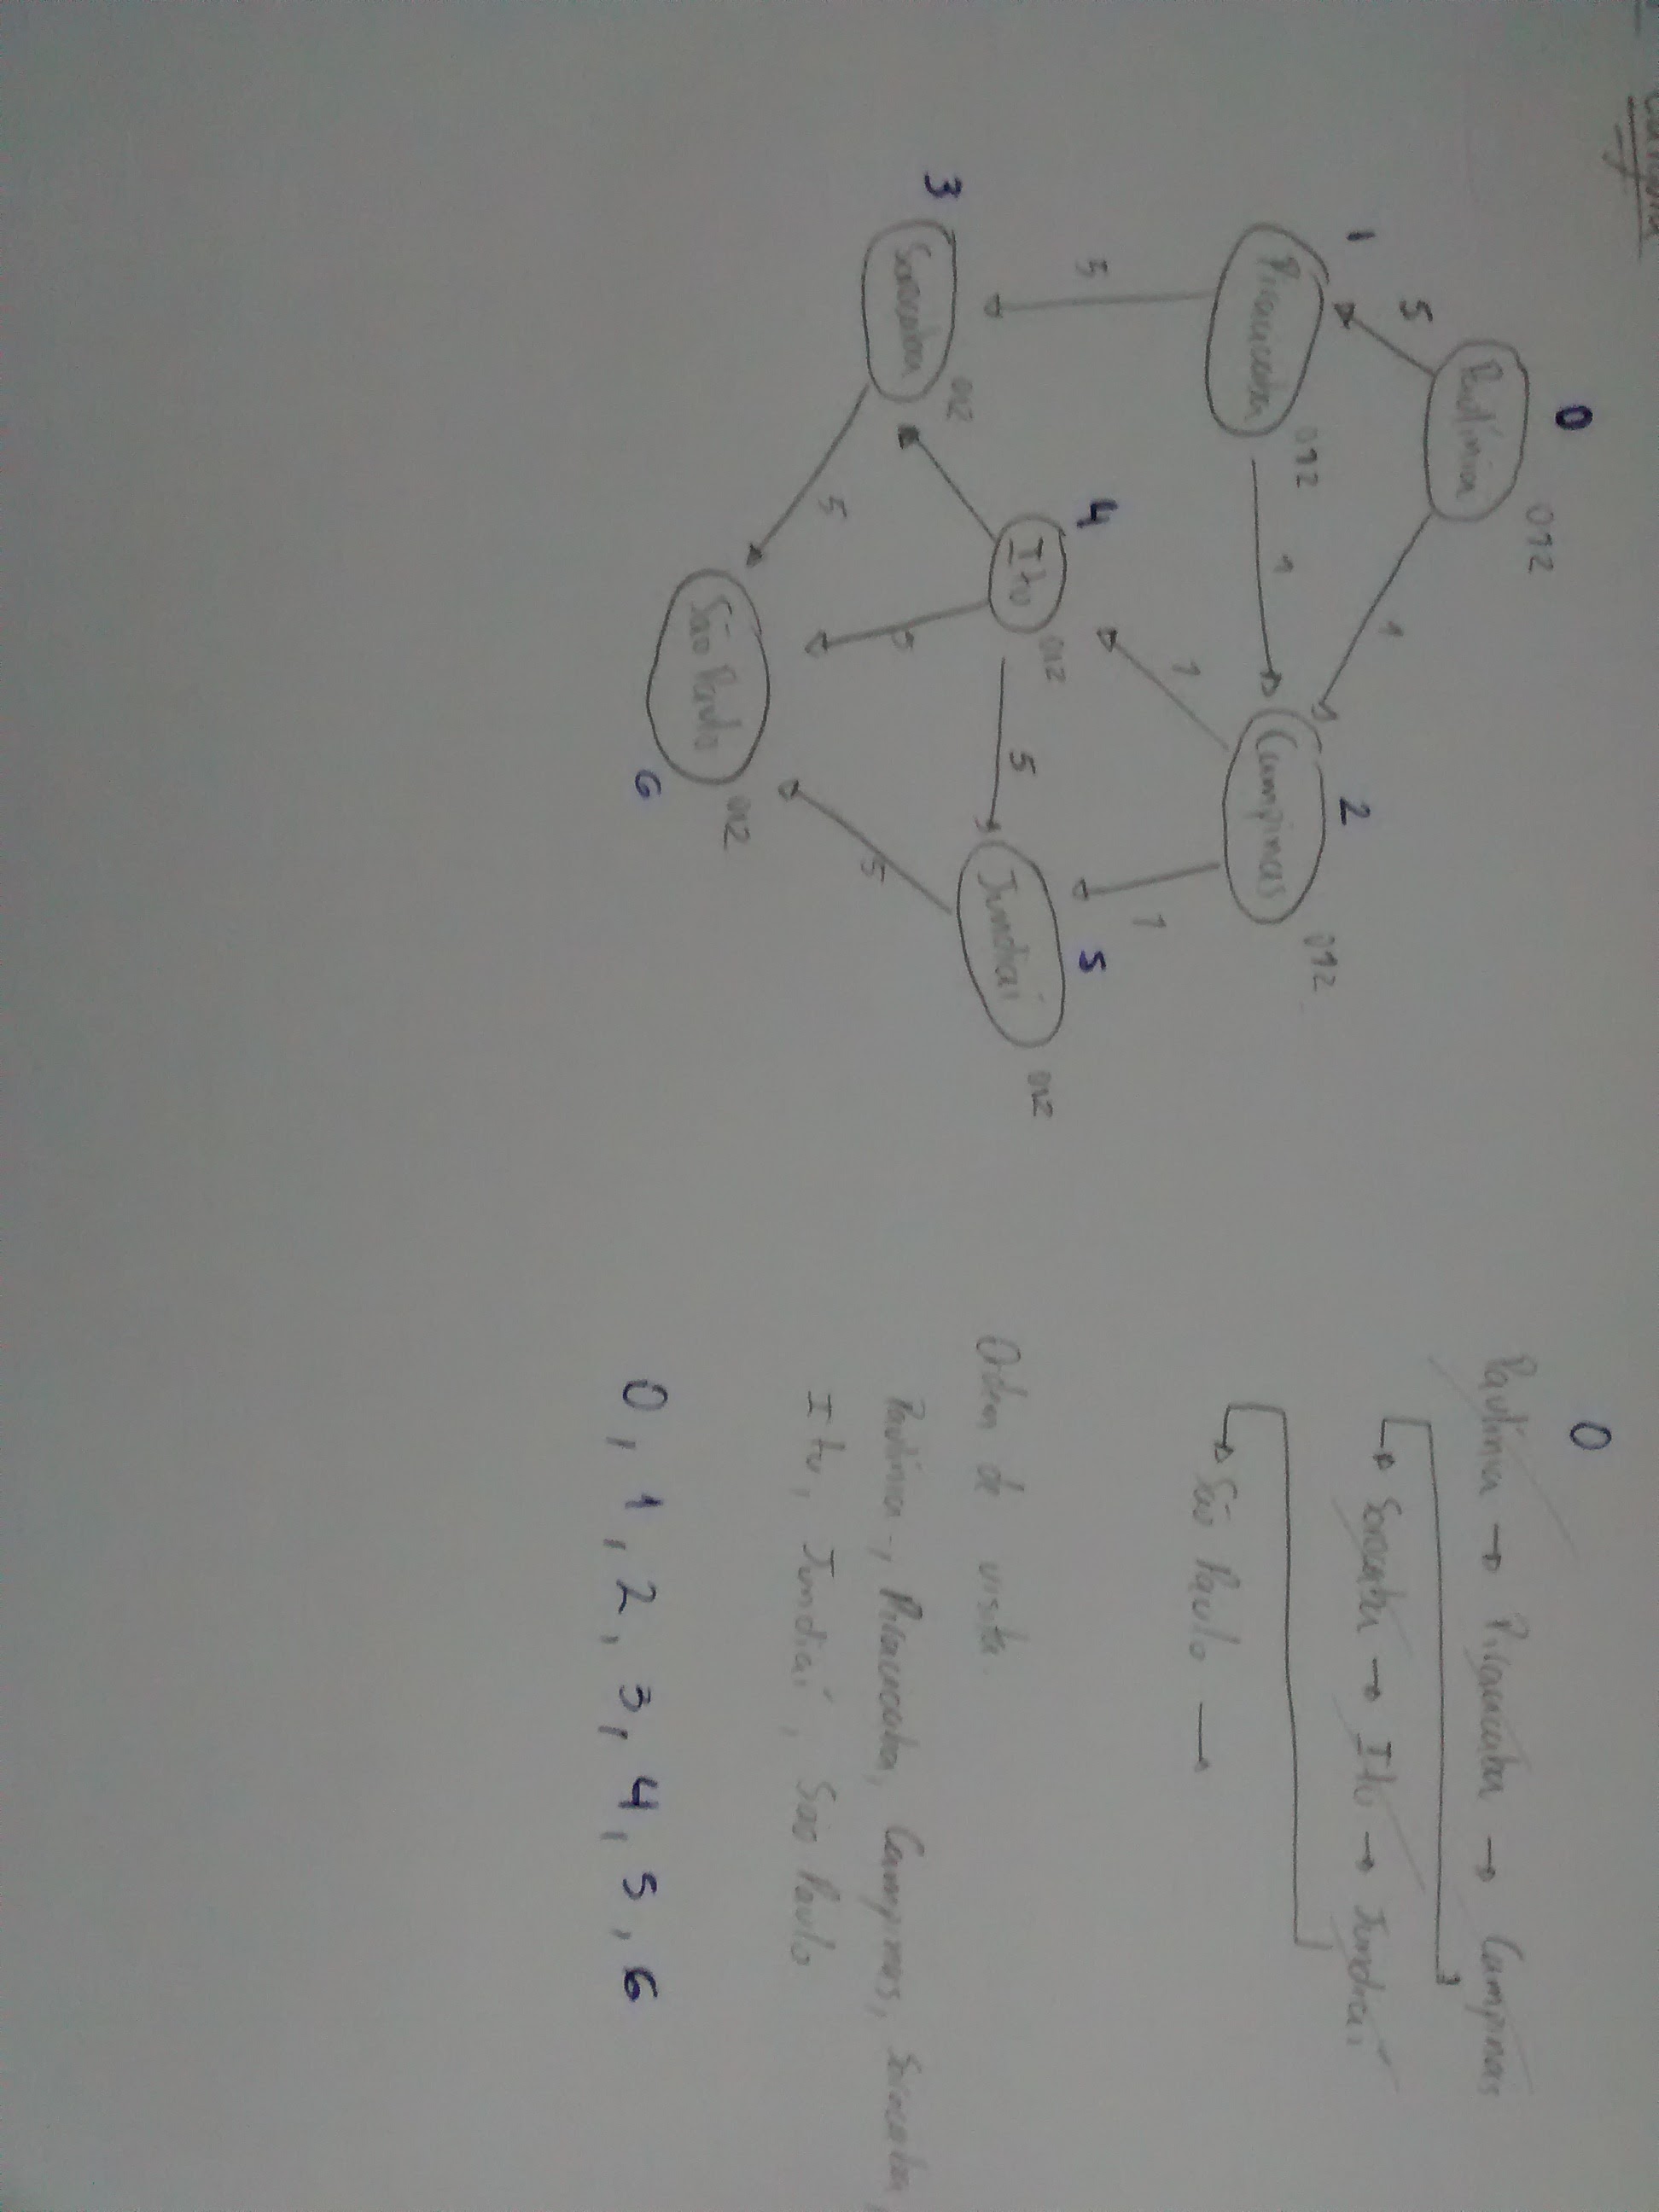 0
Paulínia
012
5
1
1
Piracicaba
012
1
2
Campinas
012
5
1
1
4
Itu
012
5
5
Jundiaí
012
3
Sorocaba
012
5
5
5
São Paulo
012
6
0
Paulínia → Piracicaba → Campinas
→ Sorocaba → Itu → Jundiaí
→ São Paulo →
Ordem de visita
Paulínia, Piracicaba, Campinas, Sorocaba,
Itu, Jundiaí, São Paulo
0, 1, 2, 3, 4, 5, 6